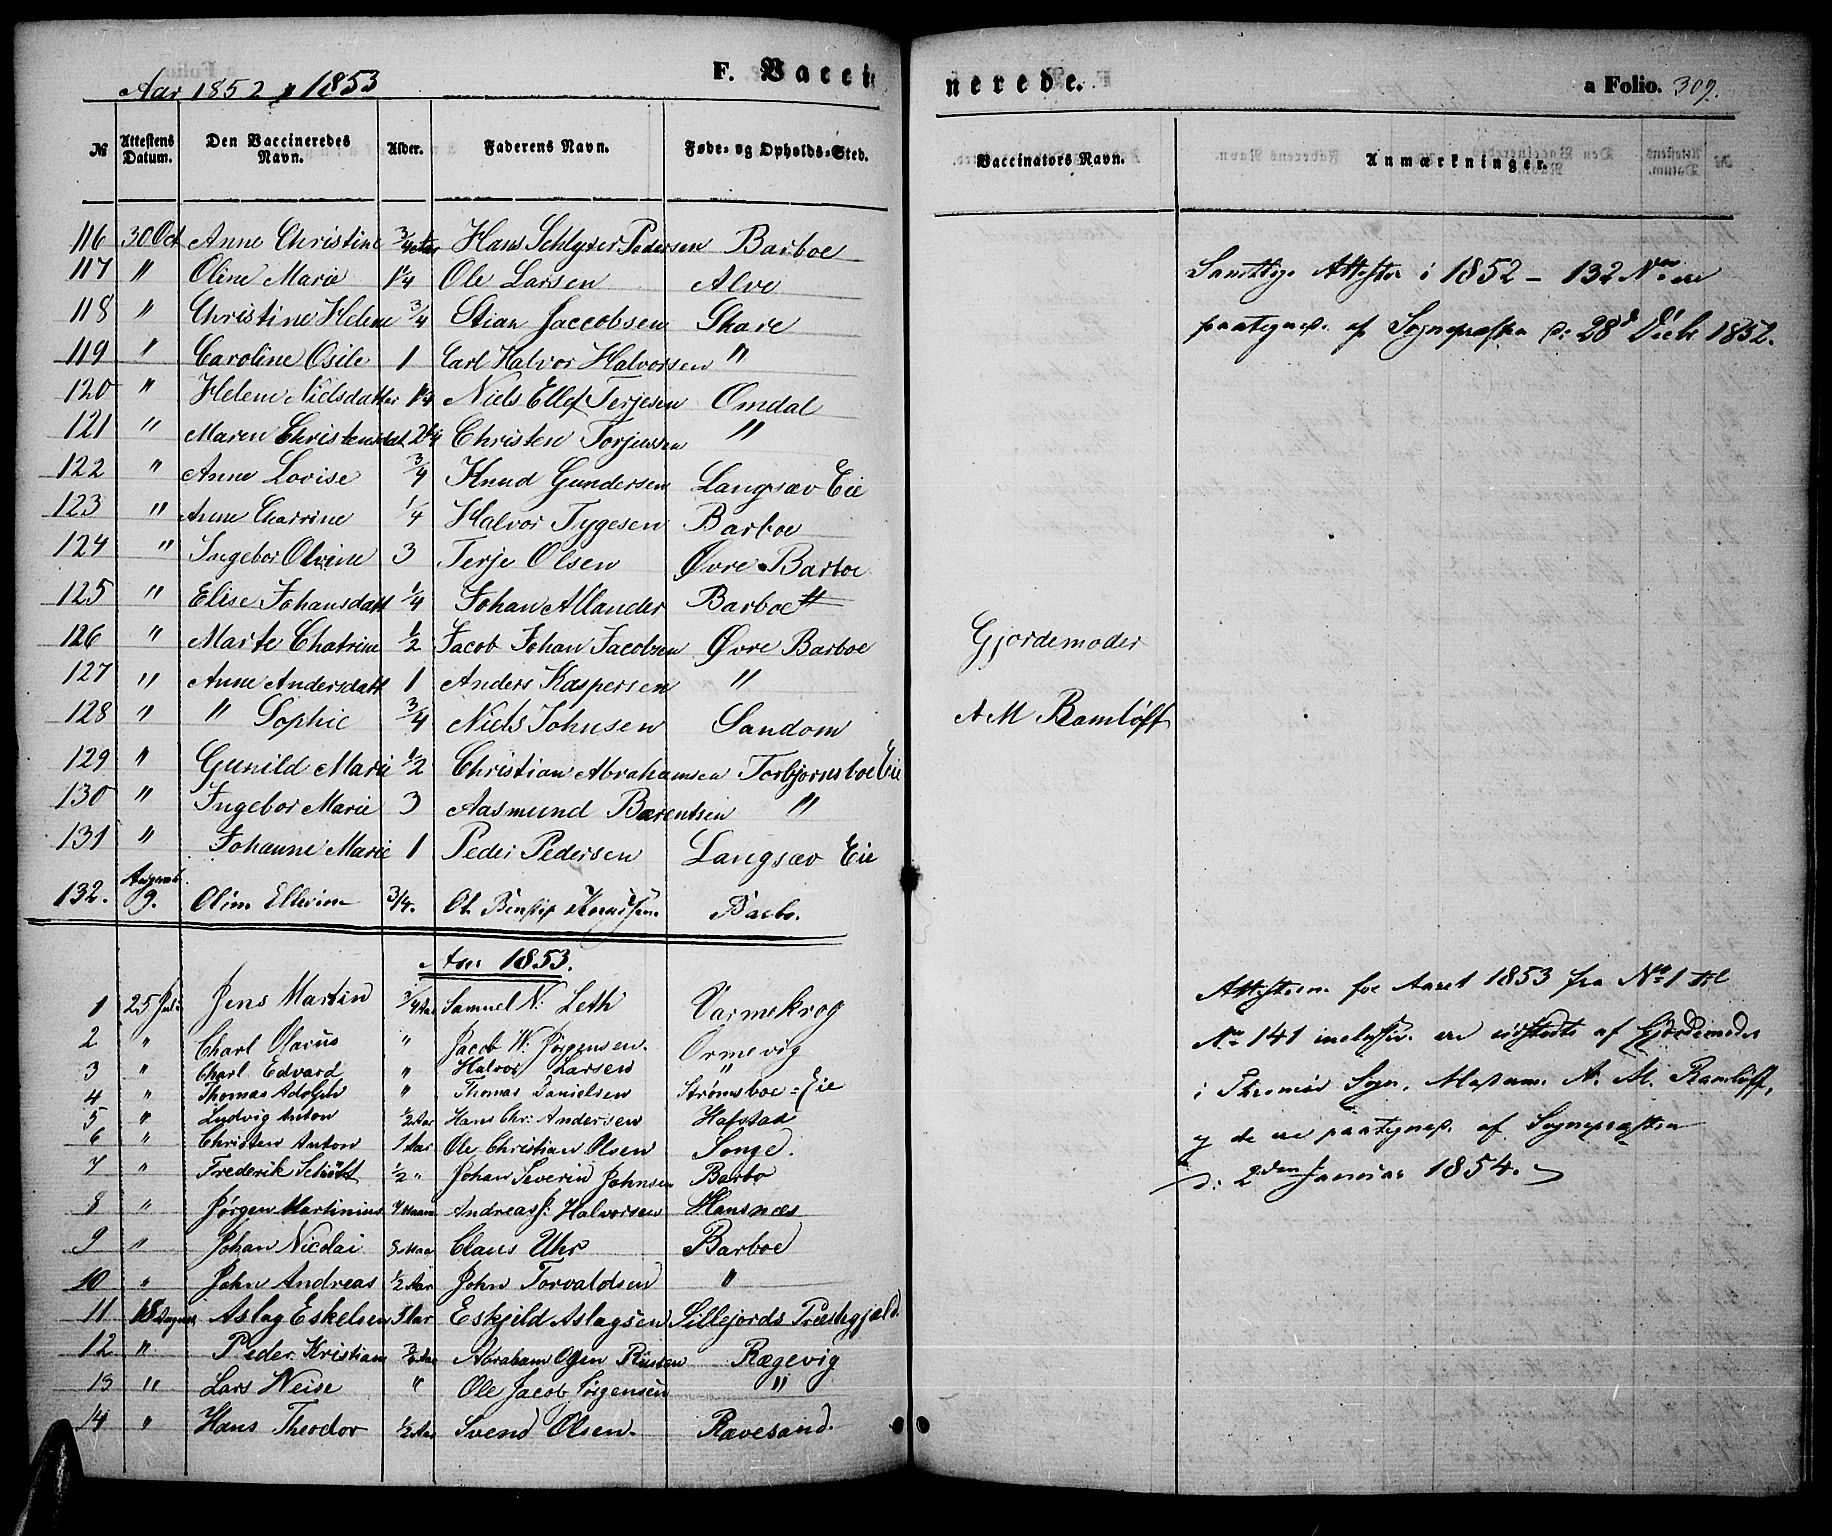 Aar 1852 & 1853 F. Vaccinerede. a Folio. 309.
№ Attestens Datum. Den Vaccineredes Navn. Alder. Faderens Navn. Føde- og Opholds-Sted. Vaccinators Navn. Anmærkninger.
116 30 Oct Anne Christine 3/4 Aar Hans Schlyter Pedersen Barboe
117 " Oline Marie 1 1/4 Ole Larsen Alve
118 " Christine Helene 3/4 Stian Jaccobsen Skare
119 " Caroline Osile 1 Carl Halvor Halvorsen "
120 " Helene Nielsdatter 1 1/4 Niels Ellef Terjesen Omdal
121 " Maren Christensdat 2 1/4 Christen Torjussen "
122 " Anne Lovise 3/4 Knud Gundersen Langsæv Eie
123 " Anne Chatrine 1/4 Halvor Tygesen Barboe
124 " Ingebor Olvine 3 Terje Olsen Øvre Barboe
125 " Elise Johansdatt 1/4 Johan Allander Barboe
126 " Marte Chatrine 1/2 Jacob Johan Jacobsen Øvre Barboe
127 " Anne Andersdatt 1 Anders Kaspersen "
128 " " Sophie 3/4 Niels Johnsen Sandom
129 " Gunild Marie 1/2 Christian Abrahamsen Torbjornsboe Eie
130 " Ingebor Marie 3 Aasmund Barentsen "
131 " Johanne Marie 1 Peder Pedersen Langsæv Eie
132. 9. Oline Ellevine 3/4. Ol. Knudsen. Barbo.
Samtlige Attester i 1852 – 132 Nre ere
paategnede af Sognepræsten d: 28d Decbr 1852.
Gjordemoder
A M Ramløff
Aar 1853.
1 25 Juli Jens Martin 3/4 Aar Samuel N: Leth Varmekrog
2 " Charl Olarus " Jacob W: Jørgensen. Ormevig
3 " Charl Edvard " Halvor Larsen "
4 " Thomas Adolph " Thomas Danielsen Strømsboe = Eie
5 " Ludvig Anton 1/2 Aar Hans Chr: Andersen Hafstad
6 " Christen Anton 1 Aar Ole Christian Olsen Songe.
7 " Frederik Schøtt 1/2 " Johan Severin Johnsen Barbo
8 " Jørgen Martinius 7 Maan Andreas J: Halvorsen Hansnæs
9 " Johan Nicolai 5 Maa Claus Uhr Barboe
10 " John Andreas 1/2 Aar John Torvaldsen "
11 18 August Aslag Eskelsen 5 Aar Eskjeld Aslagsen Sillejords Præstegjæld.
12 " Peder Kristian 3/4 Aar Abraham Olsen Rægevig
13 " Lars Neise " Ole Jacob Jørgensen "
14 " Hans Theodor 1/2 Aar Svend Olsen. Ravesand.
Attesterne for Aaret 1853 fra No 1 til
No 141 inclusive ere udstedte af Gjordemoder
i Tromøe Sogn, Madam A. M. Ramløff,
og de ere paategnede af Sognepræsten
d: 2den Januar 1854.